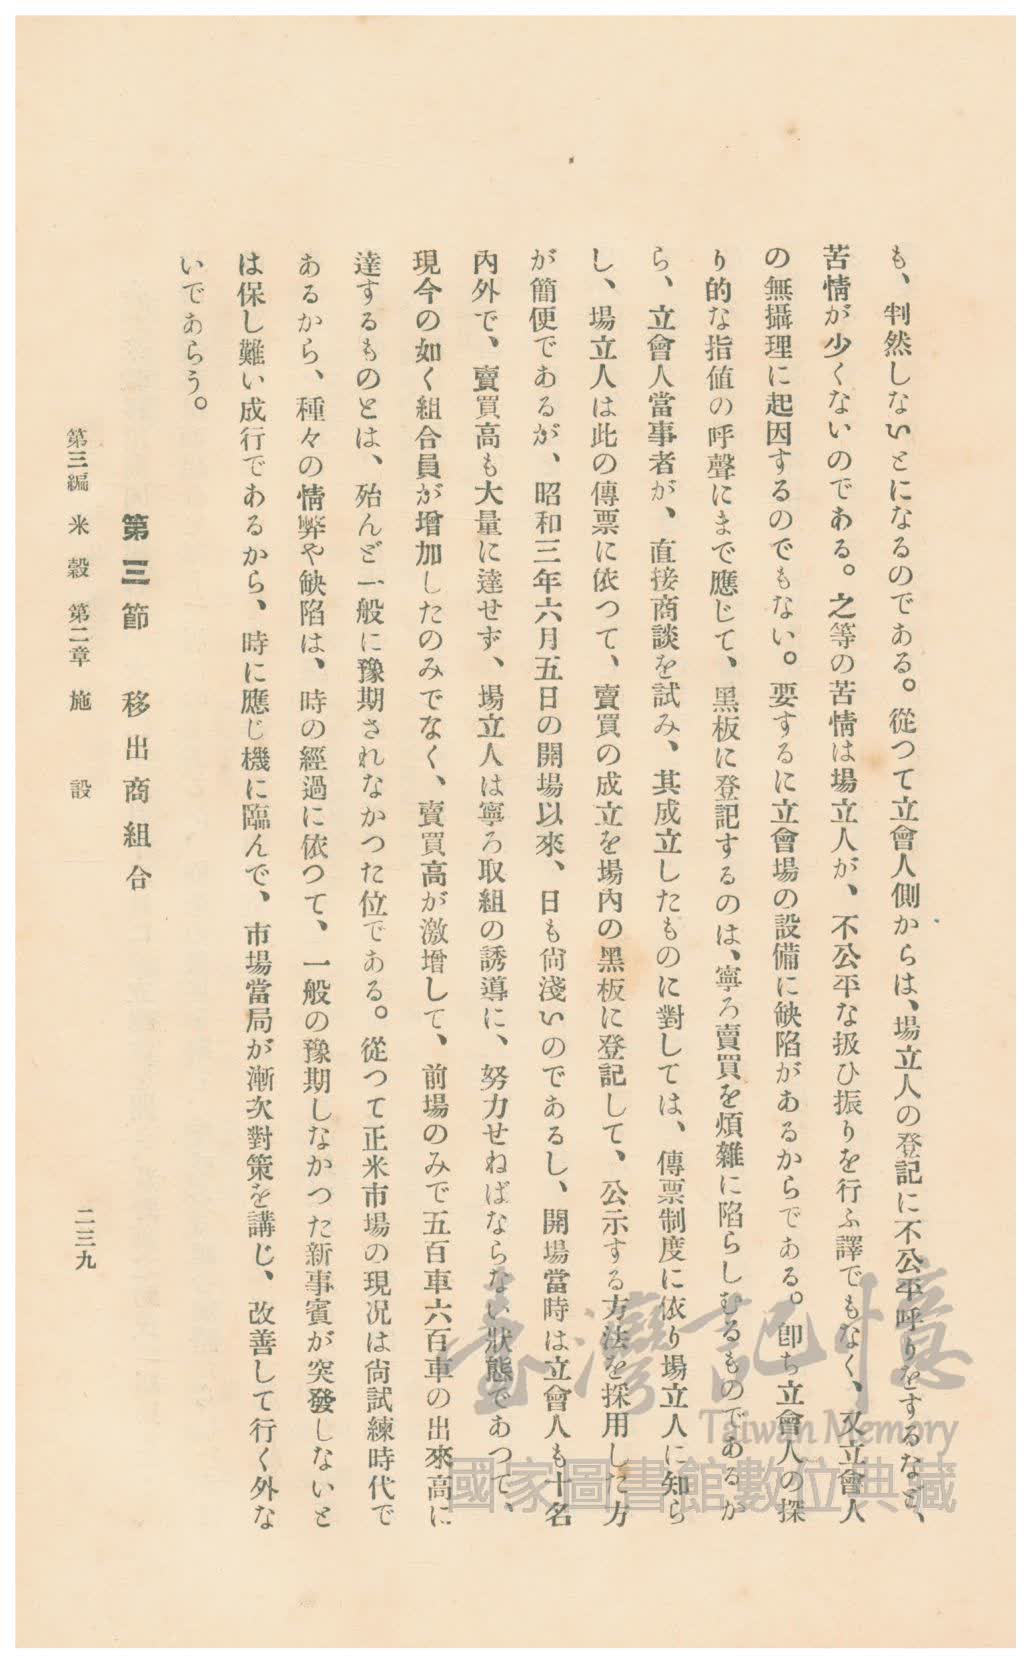 も、判然しないとになるのである。從つて立會人側からは、場立人の登記に不公平呼りをするなど、
苦情が少くないのである。之等の苦情は場立人が、不公平な扱ひ振りを行ふ譯でもなく、又立會人
の無攝理に起因するのでもない。要するに立會場の設備に缺陷があるからである。卽ち立會人の探
り的な指値の呼聲にまで應じて、黑板に登記するのは、寧ろ賣買を煩雜に陷らしむるものであるか
ら、立會人當事者が、直接商談を試み、其成立したものに對しては、傳票制度に依り場立人に知ら
し、場立人は此の傳票に依つて、賣買の成立を場內の黑板に登記して、公示する方法を採用した方
が簡便であるが、昭和三年六月五日の開場以來、日も尙淺いのであるし、開場當時は立會人も十名
內外で、賣買高も大量に達せず、場立人は寧ろ取組の誘導に、努力せねばならない狀態であつて、
現今の如く組合員が增加したのみでなく、賣買高が激增して、前場のみで五百車六百車の出來高に
達するものとは、殆んど一般に豫期されなかつた位である。從つて正米市場の現況は尙試練時代で
あるから、種々の情弊や缺陷は、時の經過に依つて、一般の豫期しなかつた新事實が突發しないと
は保し難い成行であるから、時に應じ機に臨んで、市場當局が漸次對策を講じ、改善して行く外な
いであらう。
第三節 移出商組合
第三編 米穀 第二章 施設
二三九
臺灣記憶
Taiwan Memory
國家圖書館數位典藏